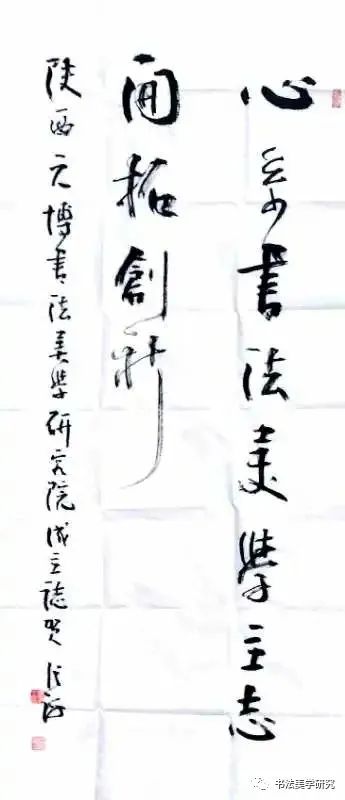 心系書法美學立志
開拓創新
陕西元博書法美學研究院成立誌贺
书法美学研究